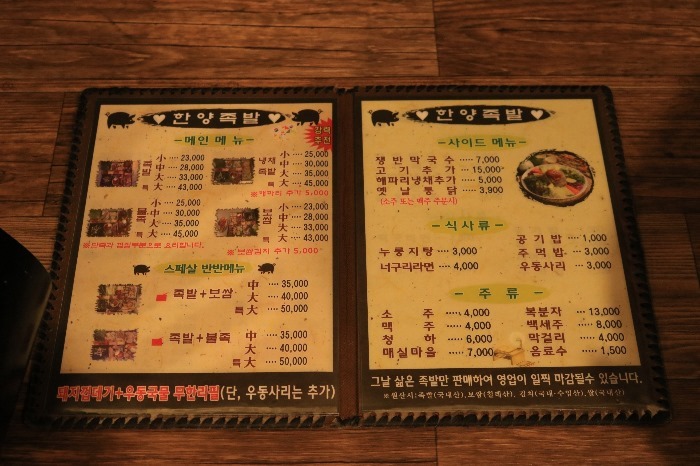 ♥ 한양족발 ♥
- 메인 메뉴 -
강력추천
족발
小 ···· 23,000
中 ···· 28,000
大 ···· 33,000
특大 ···· 43,000
냉채족발
小 ···· 25,000
中 ···· 30,000
大 ···· 35,000
특大 ···· 45,000
불족
小 ···· 25,000
中 ···· 30,000
大 ···· 35,000
특大 ···· 45,000
보쌈
小 ···· 23,000
中 ···· 28,000
大 ···· 33,000
특大 ···· 43,000
※ 보쌈김치 추가 5,000
스페샬 반반메뉴
족발+보쌈
中 ···· 35,000
大 ···· 40,000
특大 ···· 50,000
족발+불족
中 ···· 35,000
大 ···· 40,000
특大 ···· 50,000
돼지껍데기+우동국물 무한리필(단, 우동사리는 추가)
♥ 한양족발 ♥
- 사이드 메뉴 -
쟁반막국수 ···· 7,000
고기추가 ···· 15,000
해파리냉채추가 ···· 5,000
옛날통닭 ···· 3,900
(소주 또는 맥주 주문시)
- 식사류 -
누룽지탕 ···· 3,000
너구리라면 ···· 4,000
공기밥 ···· 1,000
주먹밥 ···· 3,000
우동사리 ···· 3,000
- 주류 -
소주 ···· 4,000
맥주 ···· 4,000
청하 ···· 6,000
매실마을 ···· 7,000
복분자 ···· 13,000
백세주 ···· 8,000
막걸리 ···· 4,000
음료수 ···· 1,500
그날 삶은 족발만 판매하여 영업이 일찍 마감될수 있습니다.
※원산시:족발(국내산), 보쌈(칠레산), 김치(국내·수입산), 쌀(국내산)